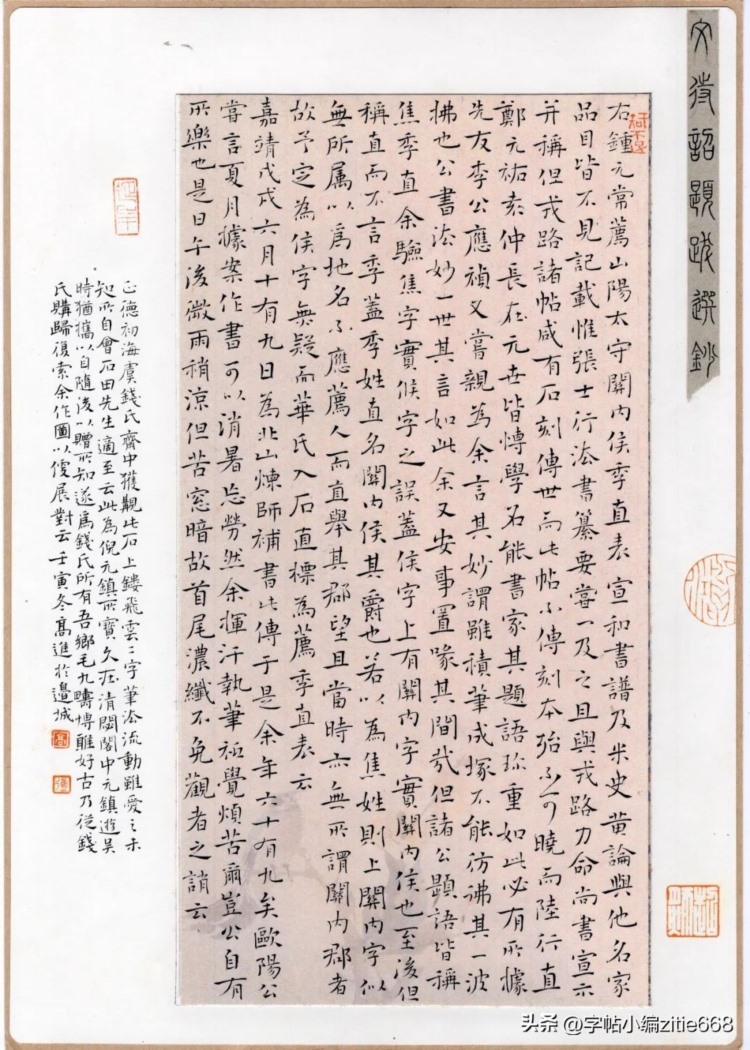 文待詔題跋選鈔
右鍾元常薦山陽太守關內侯季直表宣和書譜及米史黄論與他名家
品目皆不見記載惟張士行法書纂要嘗一及之且與戎路力命尚書宣示
并稱但戎路諸帖咸有石刻傳世而此帖不傳刻本殆不可曉而陸行直
鄭元祐袁仲長在元世皆博學名能書家其題語珍重如此必有所據
先友李公應禎又嘗親為余言其妙謂雖積筆成塚不能彷彿其一波
拂也公書法妙一世其言如此余又安事置喙其間哉但諸公題語皆稱
焦季直余驗焦字實侯字之誤蓋侯字上有關內字實關內侯也至後但
稱直而不言季蓋季姓直名關內侯其爵也若以為焦姓則上關內字似
無所属以爲地名不應薦人而直舉其郡望且當時亦無所謂關內郡者
故予定為侯字無疑而華氏入石直標為薦季直表云
嘉靖戊戌六月十有九日為北山煉師補書此傳于是余年六十有九矣歐陽公
嘗言夏月據案作書可以消暑忘勞然余揮汗執筆祗覺煩苦爾豈公自有
所樂也是日午後微雨稍涼但苦窓暗故首尾濃纖不免觀者之誚云
正德初海虞錢氏齋中獲觀此石上鏤飛雲二字筆法流動雖愛之未
知所自會石田先生適至云此為倪元鎮所寶久在清閟閣中元鎮遊吳
時猶攜以自隨後以贈所知遂爲錢氏所有吾鄉毛九疇博雅好古乃從錢
氏購歸復索余作圖以便展對云壬寅冬高進於邉城
头条 @字帖小编zitie668